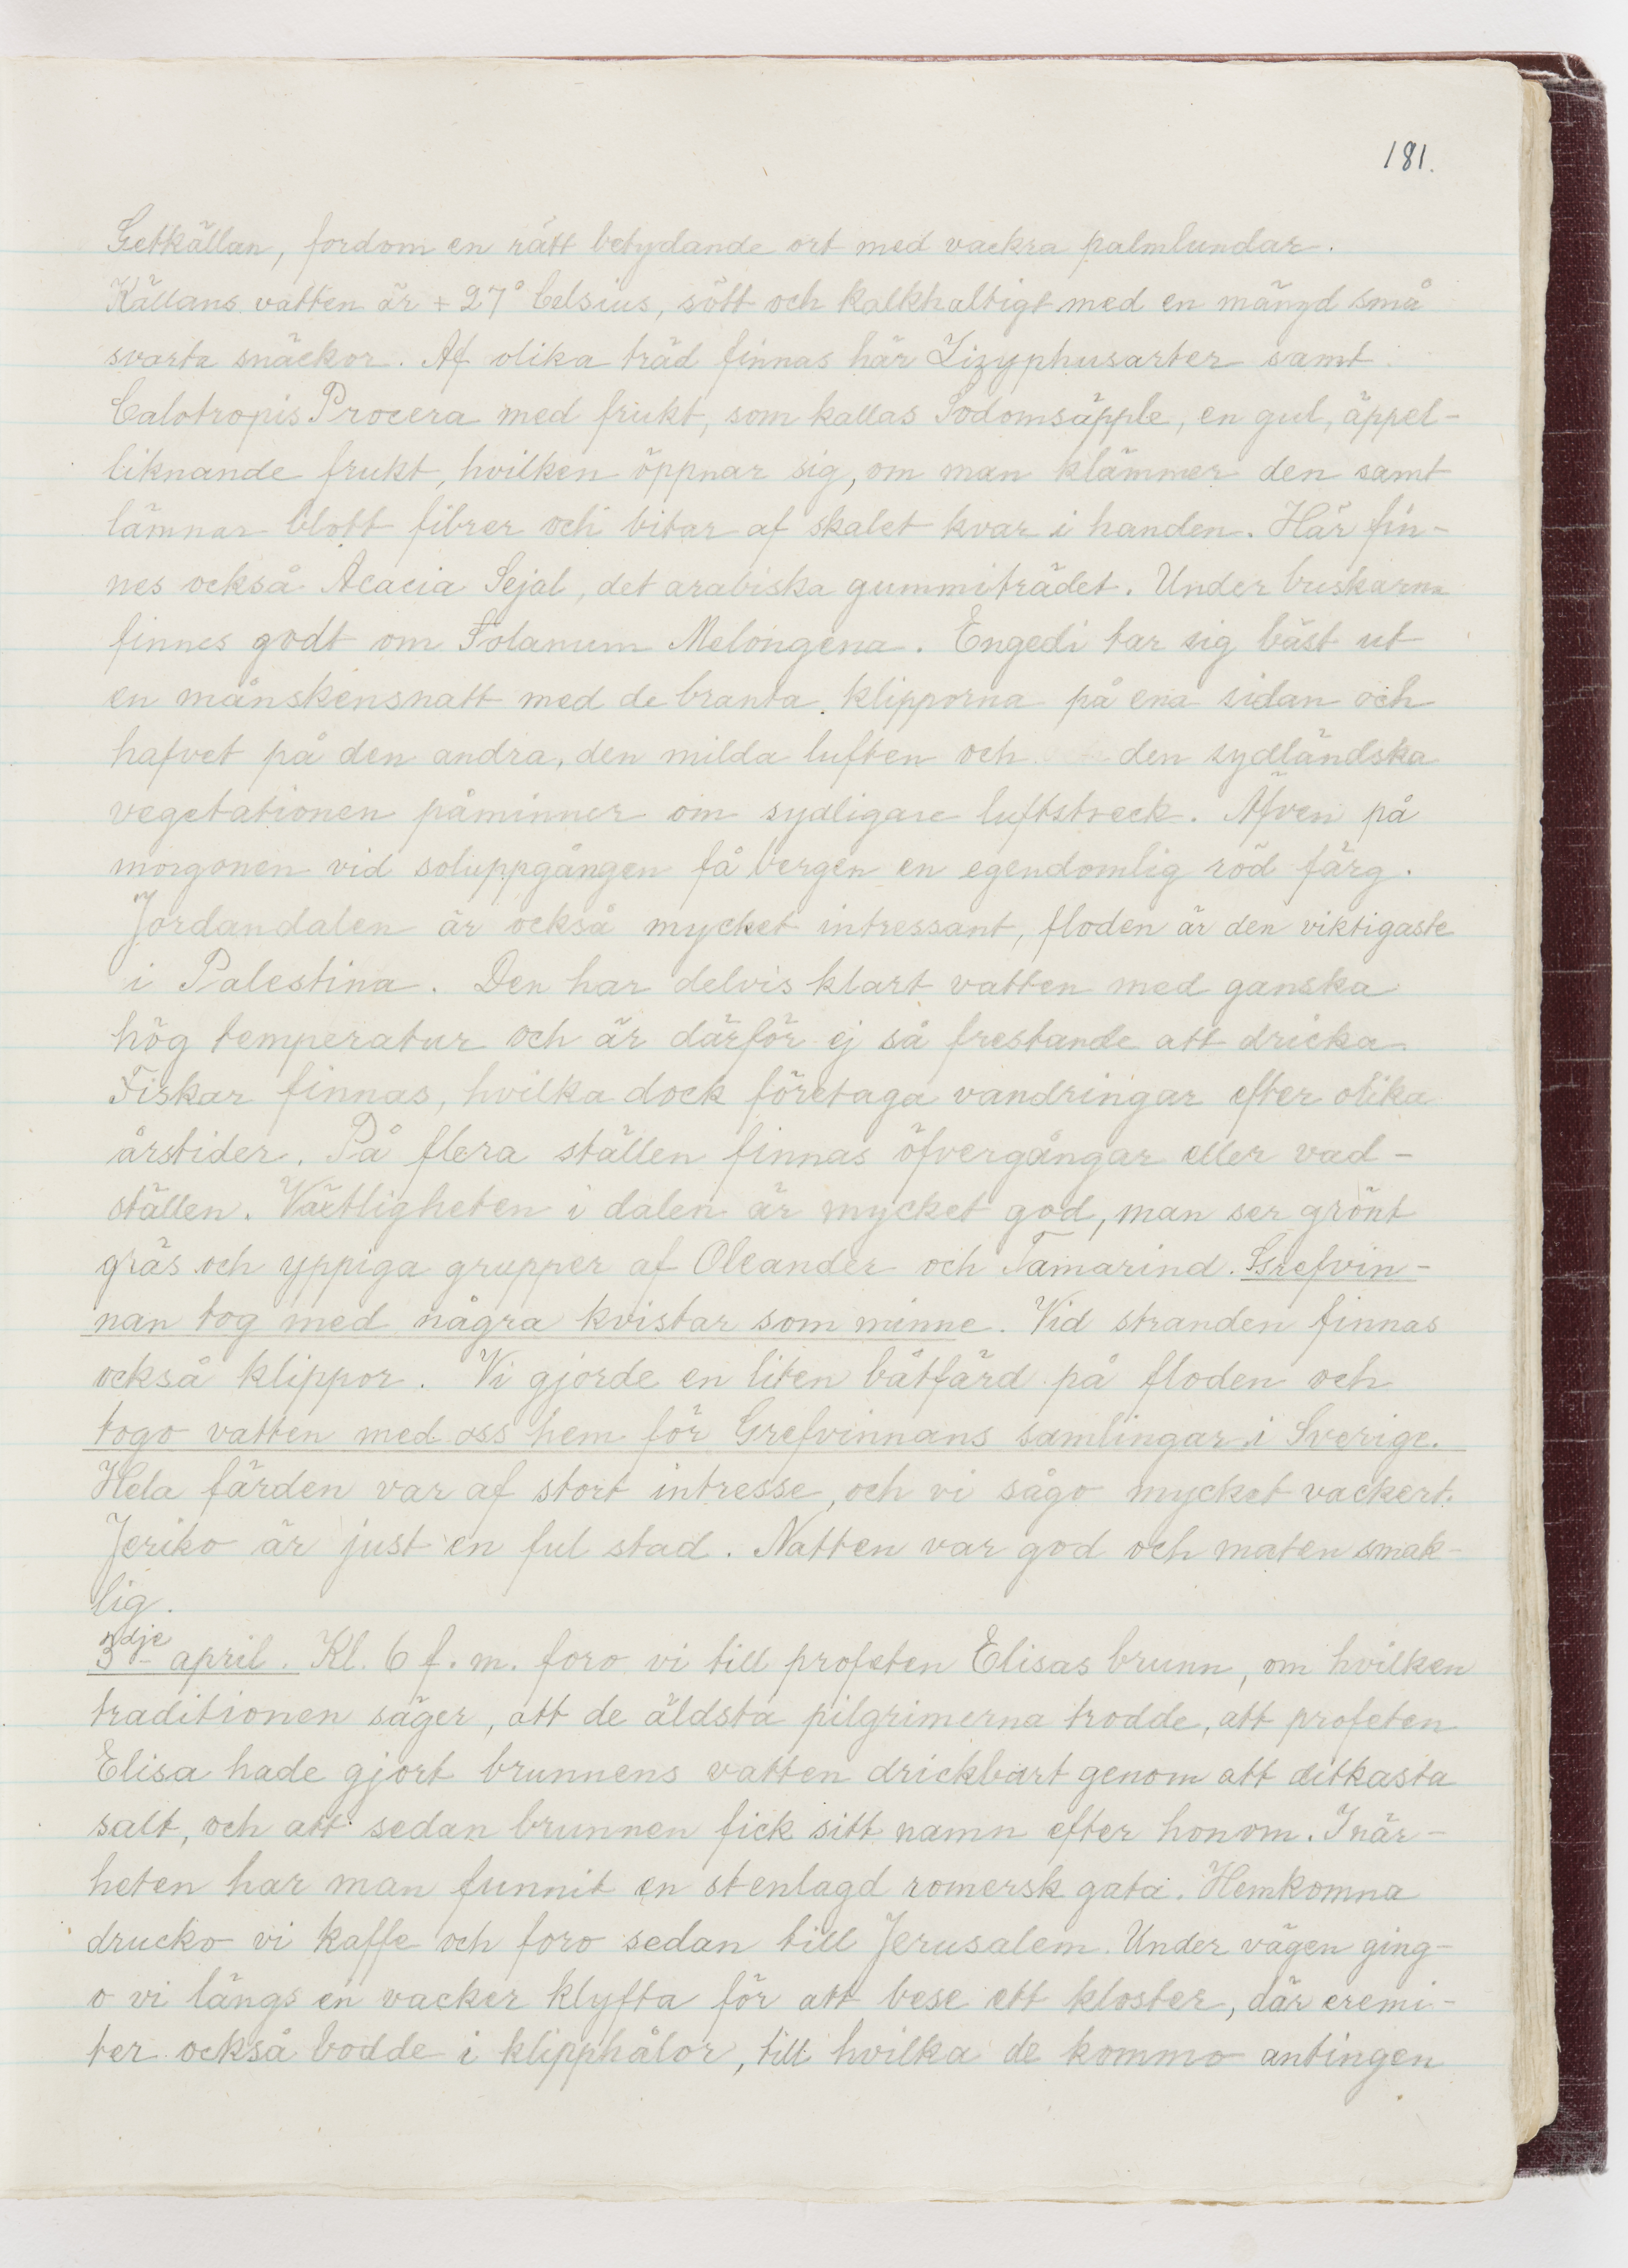 181.
Getkällan, fordom en rätt betydande ort med vackra palmlundar.
Källans vatten är + 27° Celsius, sött och kalkhaltigt med en mängd små
svarta snäckor. Af olika träd finnas här Zizyphusarter samt
Calotropis Procera med frukt, som kallas Sodomsäpple, en gul, äppel-
liknande frukt, hvilken öppnar sig, om man klämmer den samt
lämnar blott fibrer och bitar af skalet kvar i handen. Här fin-
nes också Acacia Sejal, det arabiska gummiträdet. Under buskarna
finnes godt om Solanum Melongena. Engedi tar sig bäst ut
en månskensnatt med de branta klipporna på ena sidan och
hafvet på den andra, den milda luften och den sydländska
vegetationen påminner om sydligare luftstreck. Äfven på
morgonen vid soluppgången få bergen en egendomlig röd färg.
Jordandalen är också mycket intressant, floden är den viktigaste
i Palestina. Den har delvis klart vatten med ganska
hög temperatur och är därför ej så frestande att dricka
Fiskar finnas, hvilka dock företaga vandringar efter olika
årstider. På flera ställen finnas öfvergångar eller vad-
ställen. Växtligheten i dalen är mycket god, man ser grönt
gräs och yppiga grupper af Oleander och Tamarind. Grefvin-
nan tog med några kvistar som minne. Vid stranden finnas
också klippor. Vi gjorde en liten båtfärd på floden och
togo vatten med oss hem för Grefvinnans samlingar i Sverige.
Hela färden var af stort intresse, och vi sågo mycket vackert.
Jeriko är just en ful stad. Natten var god och maten smak-
lig.
3dje april. Kl. 6 f. m. foro vi till profeten Elisas brunn, om hvilken
traditionen säger, att de äldsta pilgrimerna trodde, att profeten
Elisa hade gjort brunnens vatten drickbart genom att ditkasta
salt, och att sedan brunnen fick sitt namn efter honom. I när-
heten har man funnit en stenlagd romersk gata. Hemkomna
drucko vi kaffe och foro sedan till Jerusalem. Under vägen ging-
o vi längs en vacker klyfta för att bese ett kloster, där eremi-
ter också bodde i klipphålor, till hvilka de kommo antingen